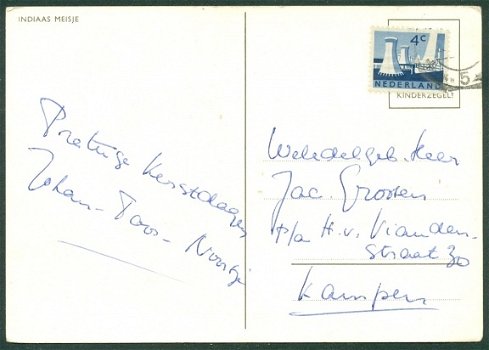 INDIAAS MEISJE
4c
NEDERLAND
KINDERZEGEL!
5
Prettige Kerstdagen
Johan - Toos - Noortje
Weledelgeb. Heer
Jac. Grooten
p/a H. v. Vianden-
straat 30
Kampen